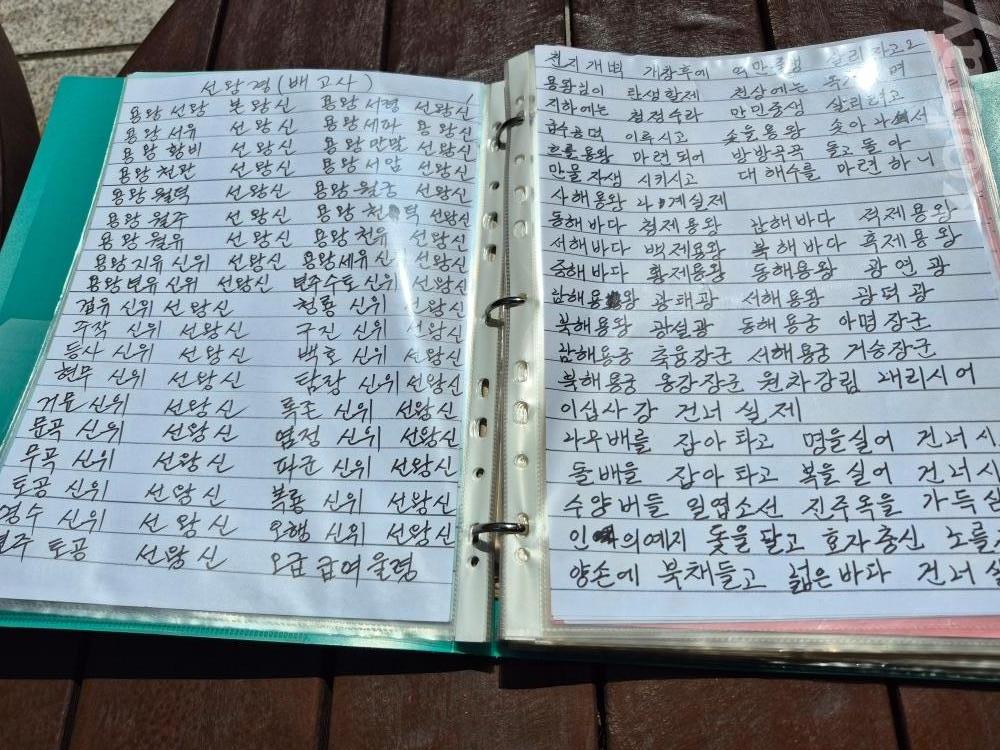 선왕경 (배고사)
용왕 선왕 본왕신 용왕 서정 선왕신
용왕 서유 선왕신 용왕 세파 용왕신
용왕 황비 선왕신 용왕 만발 선왕신
용왕 천완 선왕신 용왕 서암 선왕신
용왕 월덕 선왕신 용왕 월궁 선왕신
용왕 월주 선왕신 용왕 천덕 선왕신
용왕 월유 선왕신 용왕 천유 선왕신
용왕 지유 신위 선왕신 용왕 세유 신위 선왕신
용왕 년유 신위 선왕신 년주수토 신위 선왕신
겁유 신위 선왕신 청룡 신위 선왕신
주작 신위 선왕신 구진 신위 선왕신
등사 신위 선왕신 백호 신위 선왕신
현무 신위 선왕신 탐랑 신위 선왕신
거문 신위 선왕신 록존 신위 선왕신
문곡 신위 선왕신 염정 신위 선왕신
무곡 신위 선왕신 파군 신위 선왕신
토공 신위 선왕신 복룡 신위 선왕신
신위 선왕신 오행 신위 선왕신
토공 선왕신 오급 급여율령
천지개벽 개창후에 억만중생 살리자고
용왕님이 탄생할제 천상에는
지하에는 첨첨수라 만민중생 살리려고
급수공덕 이루시고 솟을용왕 솟아나셔서
흐를용왕 마련되어 방방곡곡 돌고돌아
만물자생 시키시고 대해수를 마련하니
사해용왕 계실제
동해바다 청제용왕 남해바다 적제용왕
서해바다 백제용왕 북해바다 흑제용왕
중해바다 황제용왕 동해용왕 광연광
남해용왕 광태광 서해용왕 광덕광
북해용왕 광설광 동해용궁 아명장군
남해용궁 축융장군 서해용궁 거승장군
북해용궁 옹강장군 원차강림 내리시어
이십사강 건너실제
나무배를 잡아타고 명을실어 건너시
돌배를 잡아타고 복을실어 건너시
수양버들 일엽소선 진주옥을 가득
인의예지 돛을달고 효자충신 노를
양손에 북채들고 넓은바다 건너